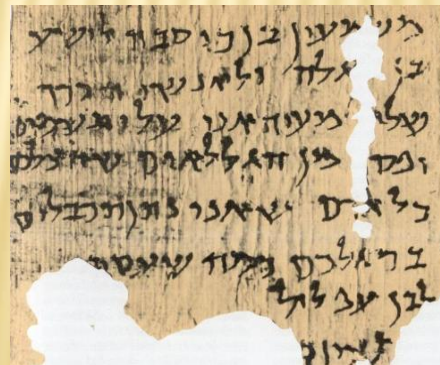 משמעון בן כוסבה לישע
בן ולאנשי הכרך
מעיד אני עלי תשמים
מן הגללאים שהצלכם
כל אדם שאני נתן תכבלים
ברגלכם כמה שעסתי
לבן עפלול